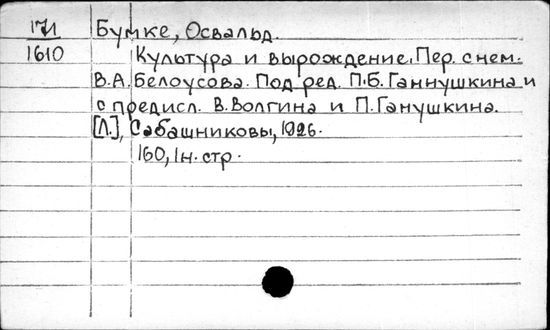 17/1 Бумке, Освальд.
1610 Культура и вырождение. Пер. с нем.
В.А. Белоусова. Под ред. П.Б. Ганнушкина и
с предисл. В. Волгина и П. Ганушкина.
[Л.], Сабашниковы, 1926.
160, 1н. стр.